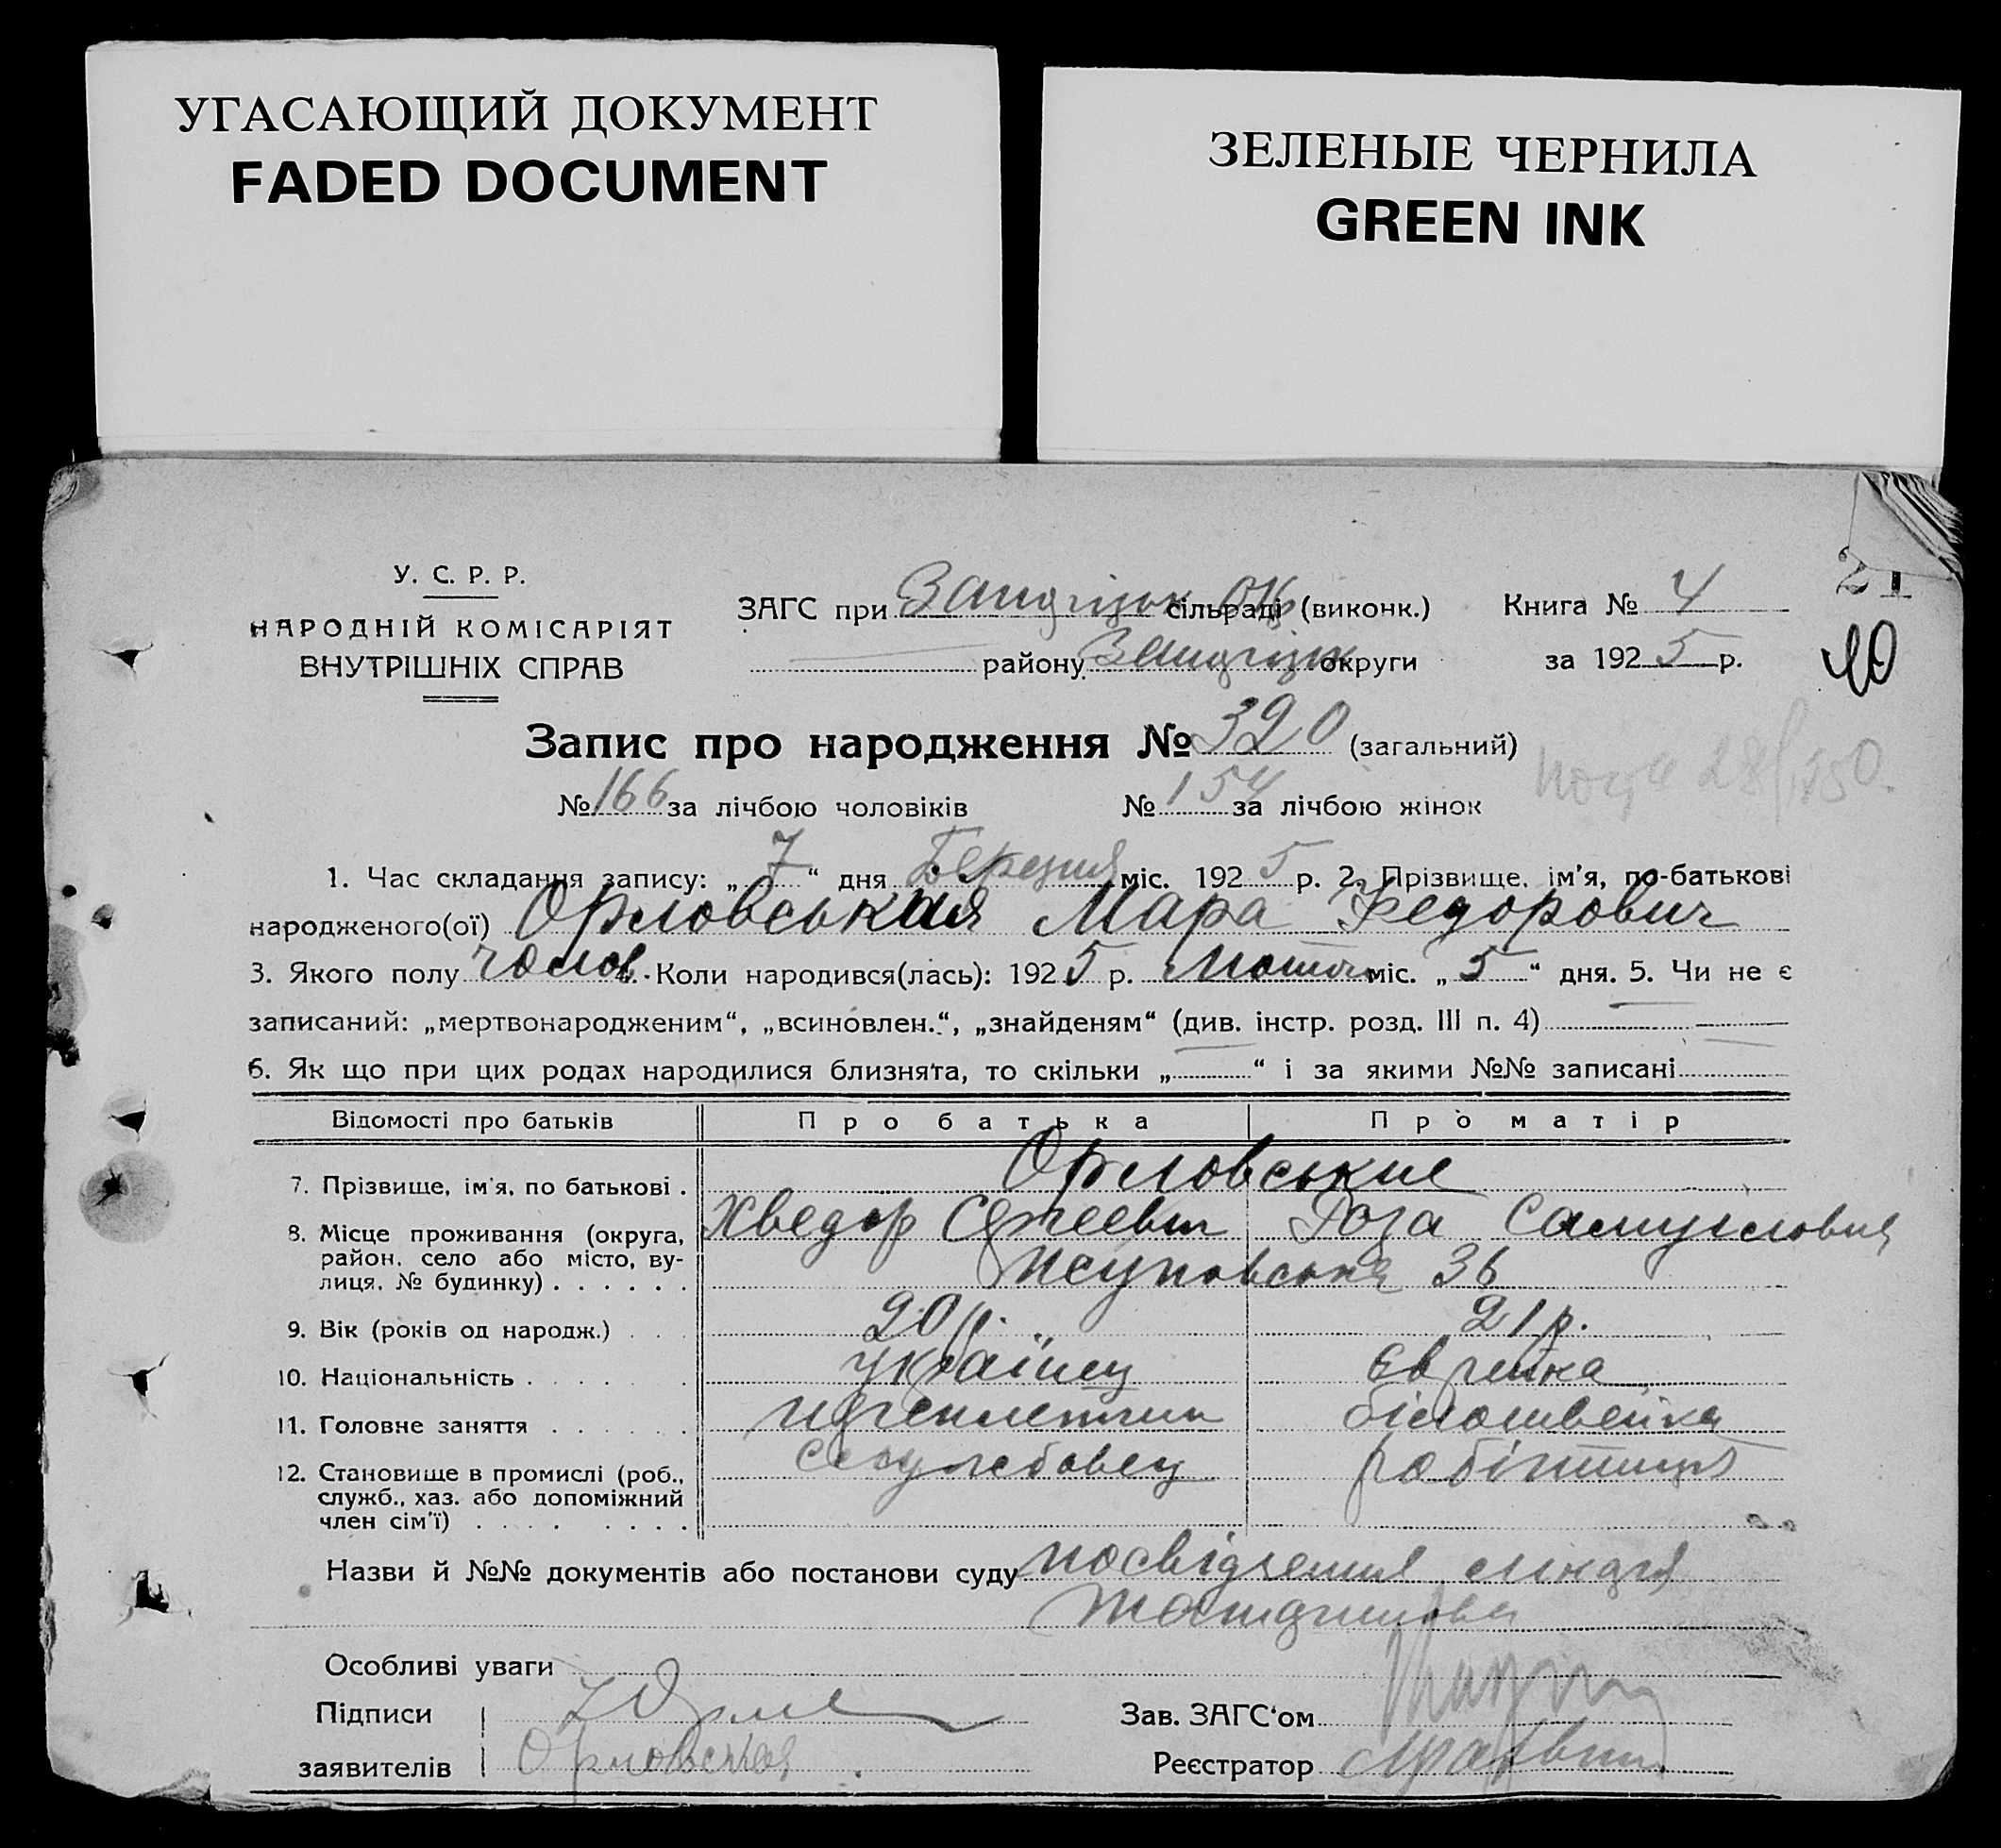 УГАСАЮЩИЙ ДОКУМЕНТ
FADED DOCUMENT
ЗЕЛЕНЫЕ ЧЕРНИЛА
GREEN INK
У. С. Р. Р.
НАРОДНІЙ КОМІСАРІЯТ
ВНУТРІШНІХ СПРАВ
ЗАГС при сільраді (виконк.)
району округи
Книга № 4
за 1925 р.
21
40
Запис про народження № 320 (загальний)
№ 166 за лічбою чоловіків № 154 за лічбою жінок
1. Час складання запису: „7“ дня Березня міс. 1925 р. 2. Прізвище, ім'я, по-батькові
народженого(ої) Орловськая Мара Федорович
3. Якого полу Коли народився(лась): 1925 р. міс. „5“ дня. 5. Чи не є
записаний: „мертвонародженим“, „всиновлен.“, „знайденям“ (див. інстр. розд. III п. 4)
6. Як що при цих родах народилися близнята, то скільки „ “ і за якими №№ записані
Відомості про батьків Про батька Про матір
7. Прізвище, ім'я, по батькові . Орловськие
Хведор Роза Самуиловна
8. Місце проживання (округа, район, село або місто, вулиця, № будинку) . . . . . . 36
9. Вік (років од народж.) . . . 20 р. 21 р.
10. Національність . . . . . . українец Єврейка
11. Головне заняття . . . . . . білошвейка
12. Становище в промислі (роб., служб., хаз. або допоміжний член сім'ї) . . . . . . . . службовец робітниця
Назви й №№ документів або постанови суду посвідчення
Особливі уваги
Підписи
заявителів Орловская
Зав. ЗАГС'ом
Реєстратор